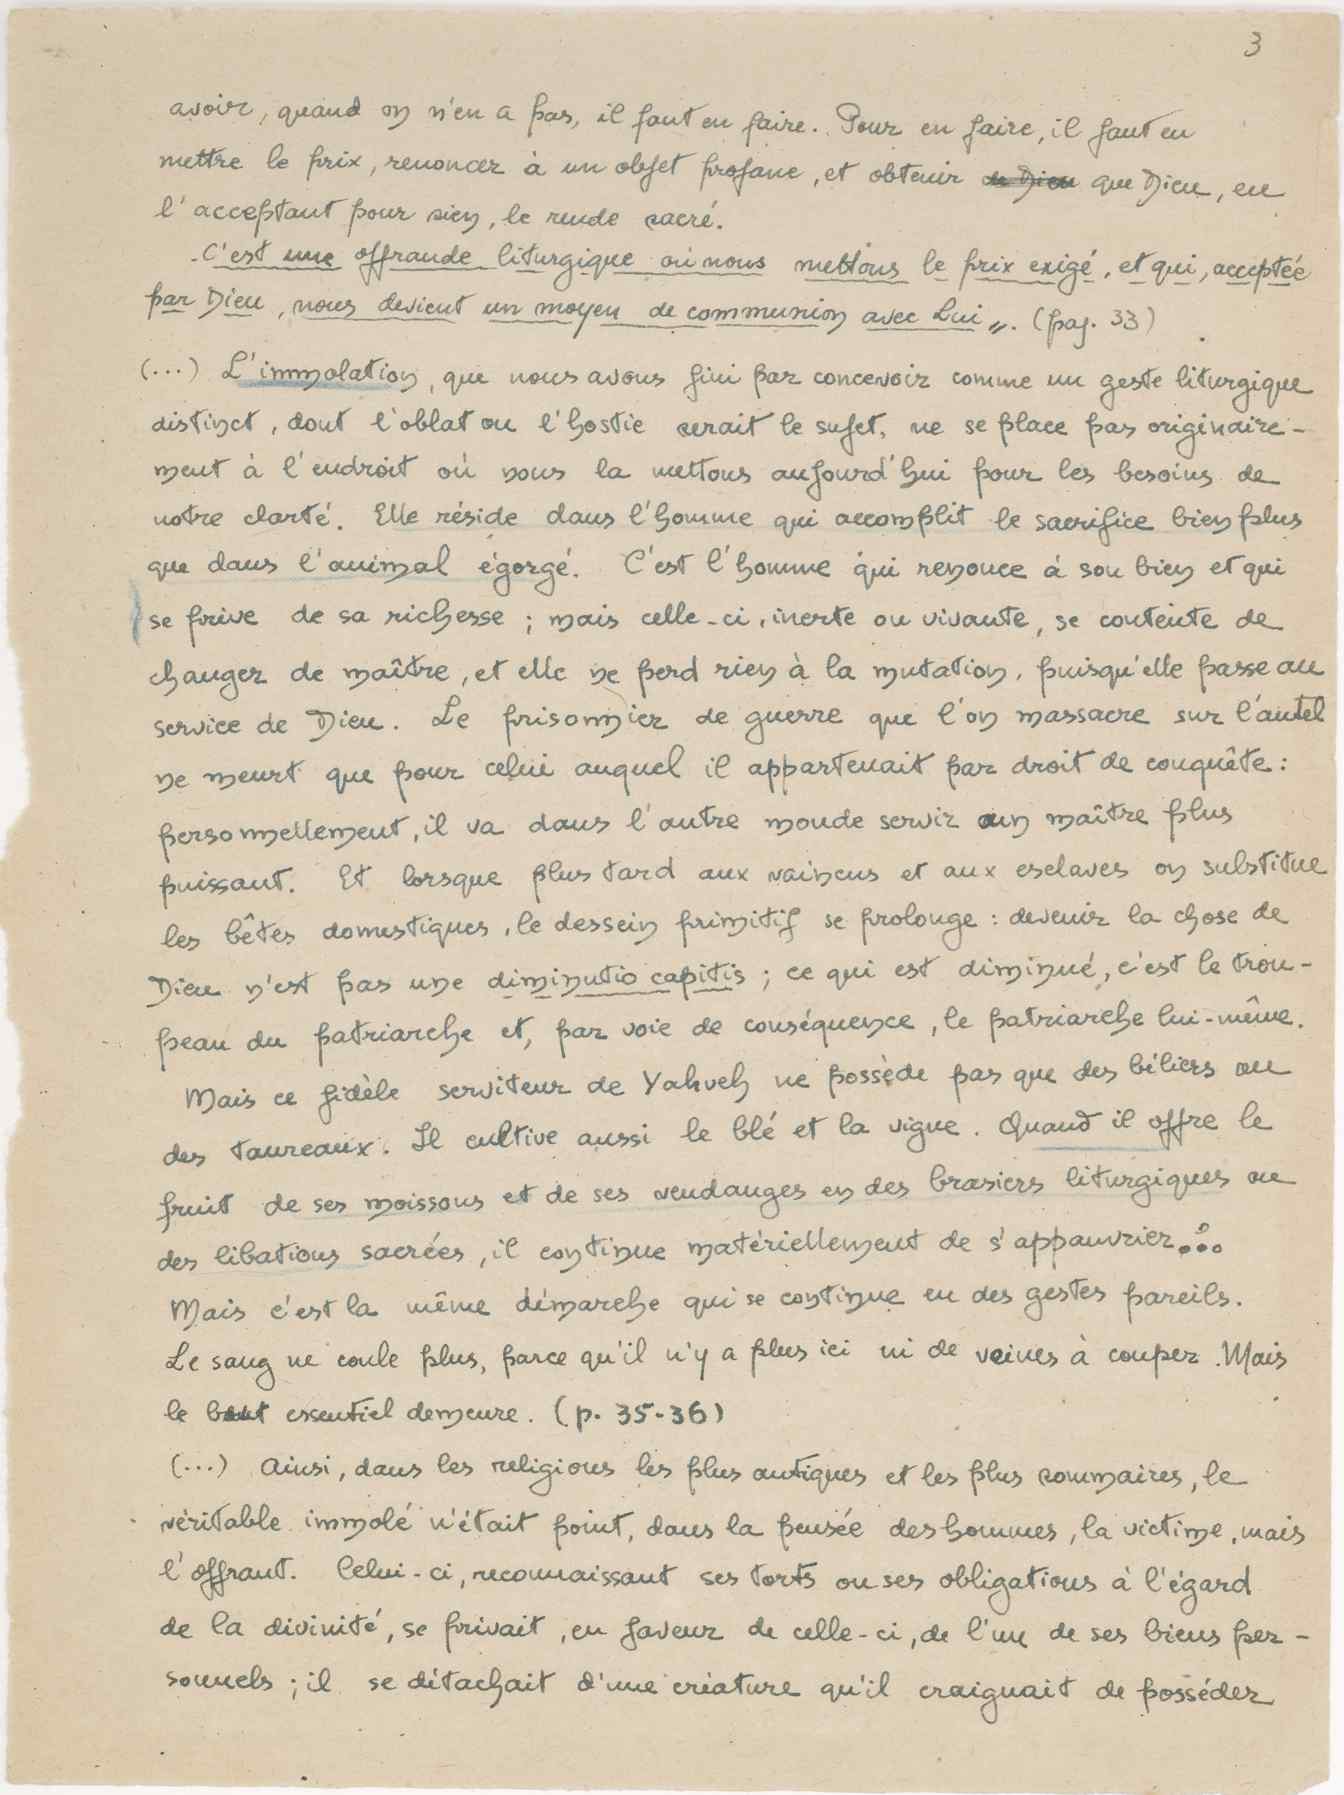 3
avoir, quand on n'en a pas, il faut en faire. Pour en faire, il faut en
mettre le prix, renoncer à un objet profane, et obtenir de Dieu que Dieu, en
l'acceptant pour sien, le rende sacré.
C'est une offrande liturgique où nous mettons le prix exigé, et qui, acceptée
par Dieu, nous devient un moyen de communion avec Lui". (pag. 33)
(...) L'immolation, que nous avons fini par concevoir comme un geste liturgique
distinct, dont l'oblat ou l'hostie serait le sujet, ne se place pas originaire-
ment à l'endroit où nous la mettons aujourd'hui pour les besoins de
notre clarté. Elle réside dans l'homme qui accomplit le sacrifice bien plus
que dans l'animal égorgé. C'est l'homme qui renonce à son bien et qui
se prive de sa richesse ; mais celle-ci, inerte ou vivante, se contente de
changer de maître, et elle ne perd rien à la mutation, puisqu'elle passe au
service de Dieu. Le prisonnier de guerre que l'on massacre sur l'autel
ne meurt que pour celui auquel il appartenait par droit de conquête :
personnellement, il va dans l'autre monde servir un maître plus
puissant. Et lorsque plus tard aux vaincus et aux esclaves on substitue
les bêtes domestiques, le dessein primitif se prolonge : devenir la chose de
Dieu n'est pas une diminutio capitis ; ce qui est diminué, c'est le trou-
peau du patriarche et, par voie de conséquence, le patriarche lui-même.
Mais ce fidèle serviteur de Yahveh ne possède pas que des béliers ou
des taureaux. Il cultive aussi le blé et la vigne. Quand il offre le
fruit de ses moissons et de ses vendanges en des brasiers liturgiques ou
des libations sacrées, il continue matériellement de s'appauvrir...
Mais c'est la même démarche qui se continue en des gestes pareils.
Le sang ne coule plus, parce qu'il n'y a plus ici ni de veines à couper. Mais
le but essentiel demeure. (p. 35-36)
(...) Ainsi, dans les religions les plus antiques et les plus sommaires, le
véritable immolé n'était point, dans la pensée des hommes, la victime, mais
l'offrant. Celui-ci, reconnaissant ses torts ou ses obligations à l'égard
de la divinité, se privait, en faveur de celle-ci, de l'un de ses biens per-
sonnels ; il se détachait d'une créature qu'il craignait de posséder